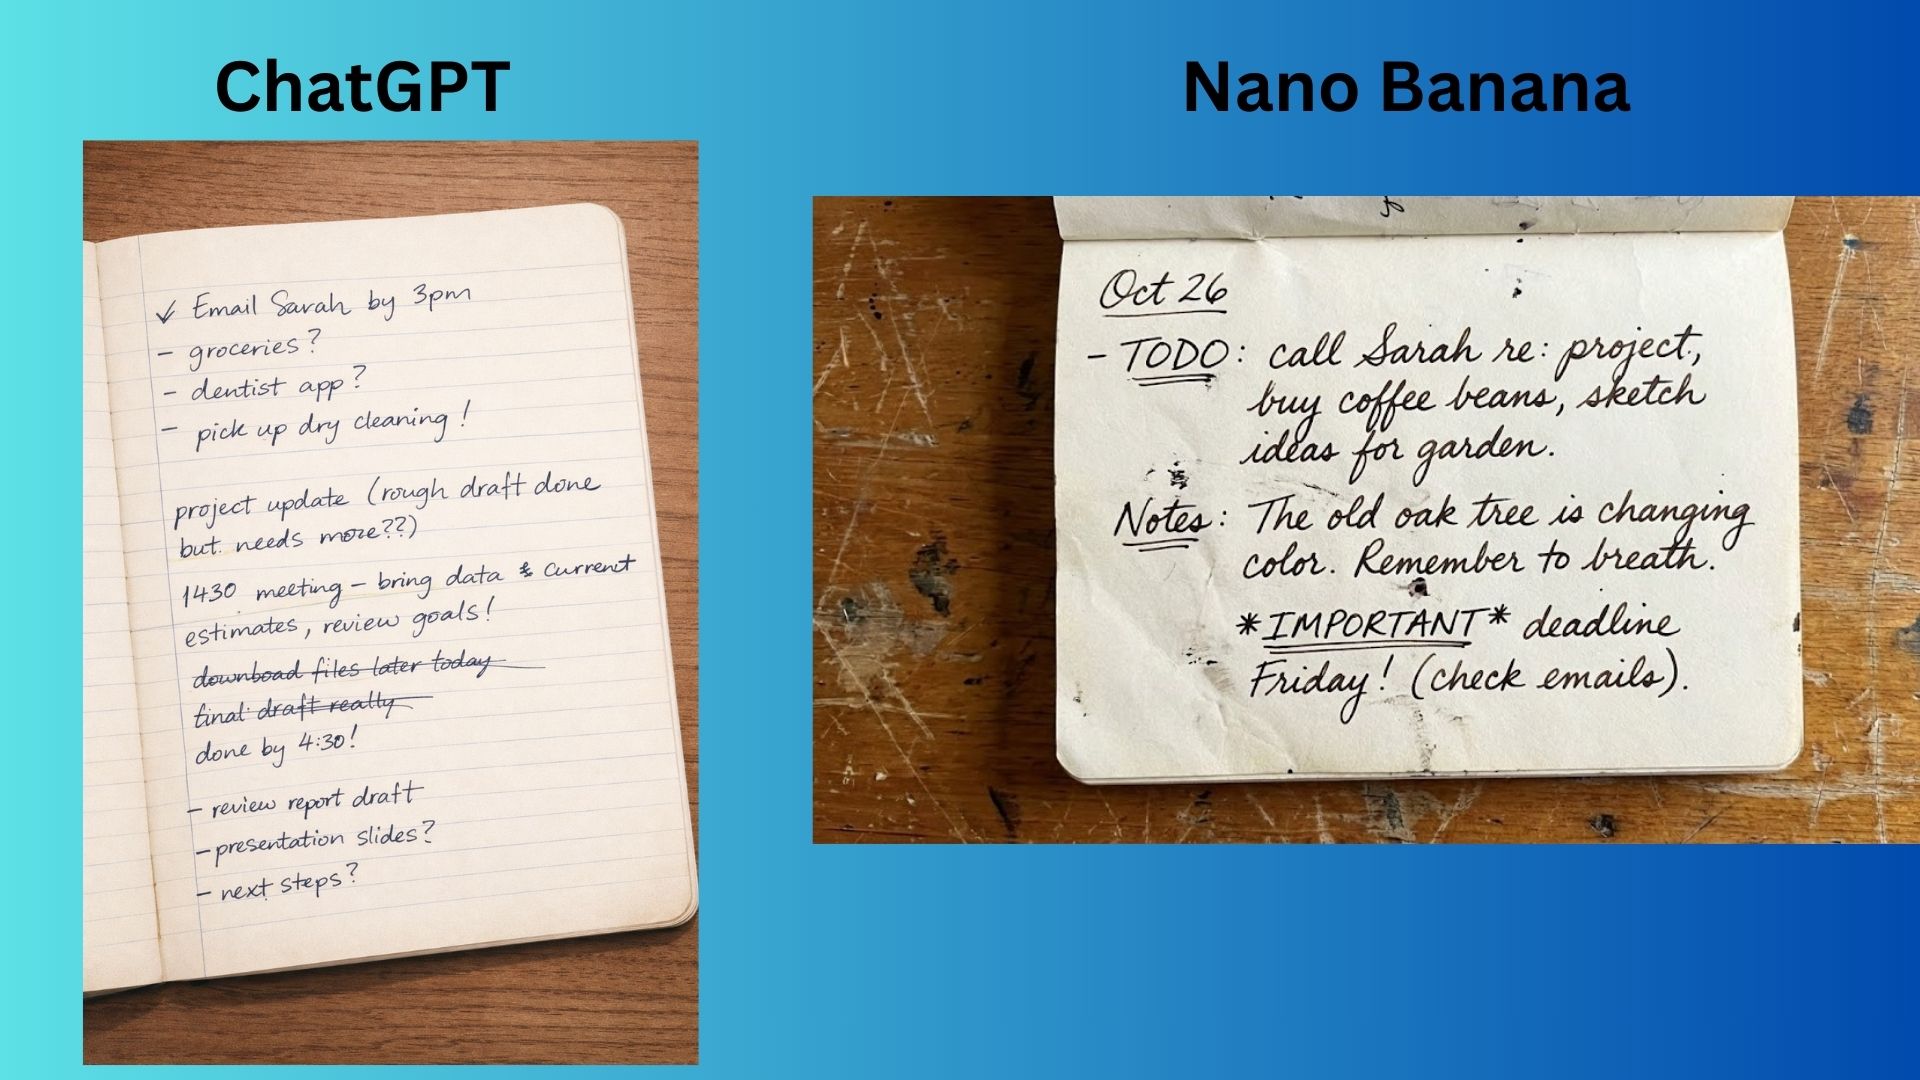 ChatGPT
Email Sarah by 3pm
- groceries?
- dentist app?
- pick up dry cleaning!
project update (rough draft done
but needs more??)
1430 meeting - bring data & current
estimates, review goals!
download files later today
final draft really
done by 4:30!
- review report draft
- presentation slides?
- next steps?
Nano Banana
Oct 26
- TODO: call Sarah re: project,
buy coffee beans, sketch
ideas for garden.
Notes: The old oak tree is changing
color. Remember to breath.
*IMPORTANT* deadline
Friday! (check emails).